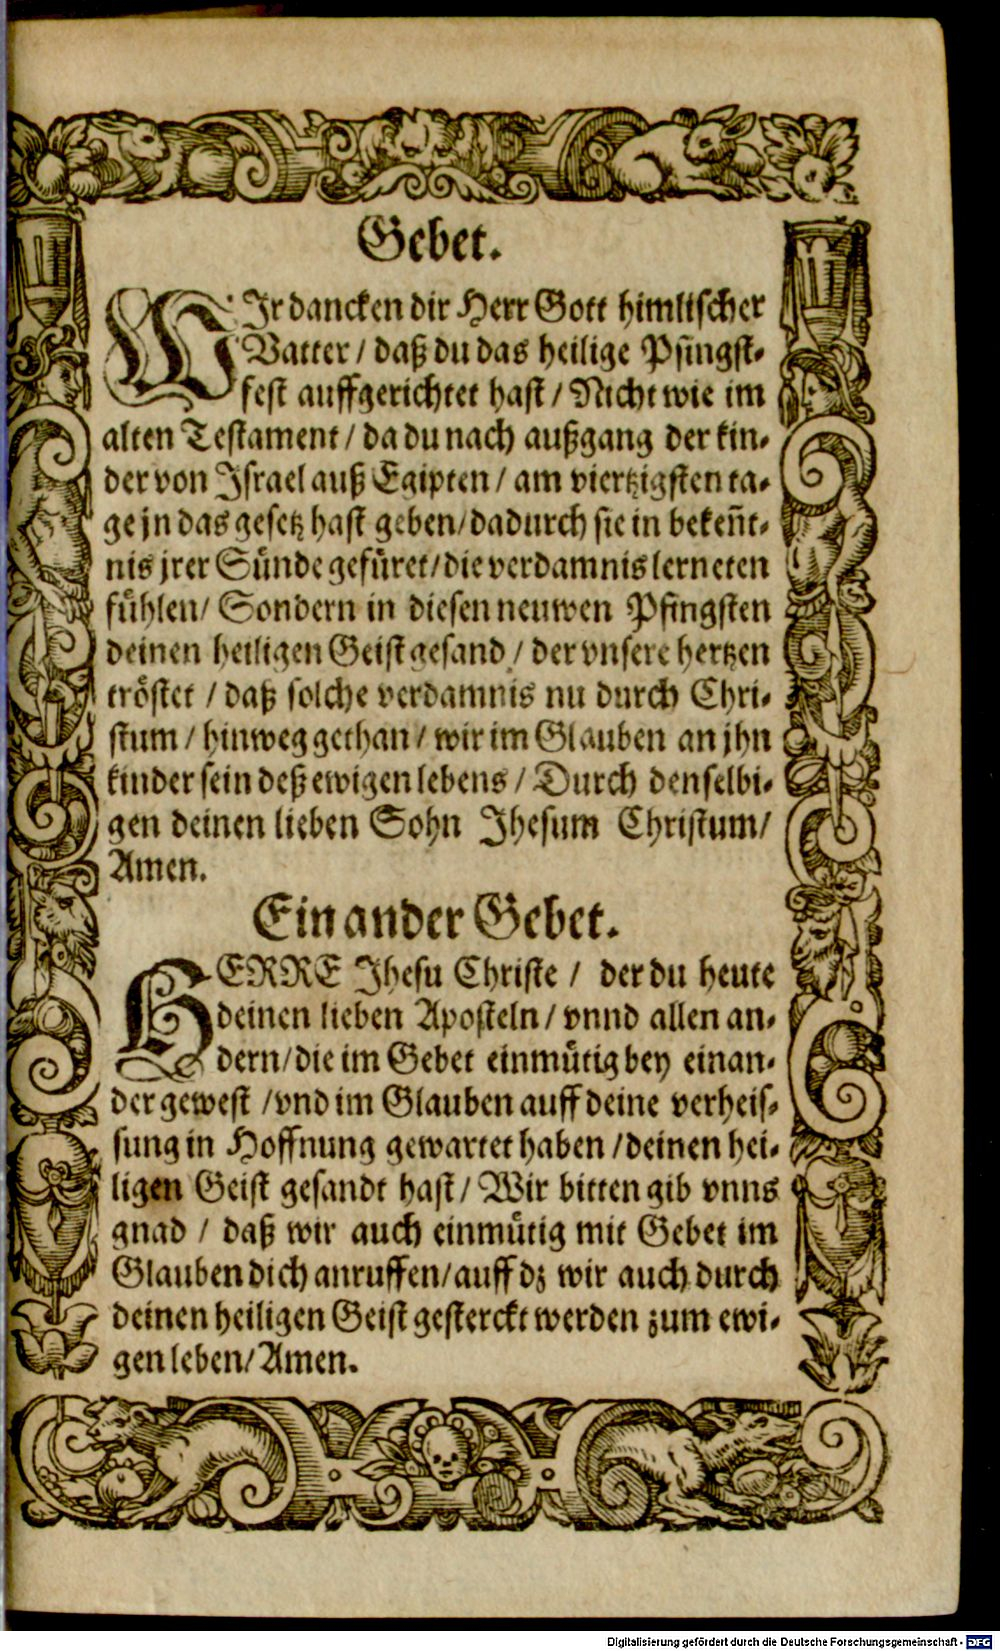 Gebet.
WIr dancken dir Herr Gott himlischer
Vatter / daß du das heilige Pfingst-
fest auffgerichtet hast / Nicht wie im
alten Testament / da du nach außgang der kin-
der von Israel auß Egipten / am viertzigsten ta-
ge jn das gesetz hast geben / dadurch sie in bekeñt-
nis jrer Sünde gefüret / die verdamnis lerneten
fühlen / Sondern in diesen neuwen Pfingsten
deinen heiligen Geist gesand / der vnsere hertzen
tröstet / daß solche verdamnis nu durch Chri-
stum / hinweg gethan / wir im Glauben an jhn
kinder sein deß ewigen lebens / Durch denselbi-
gen deinen lieben Sohn Jhesum Christum /
Amen.
Ein ander Gebet.
HERRE Jhesu Christe / der du heute
deinen lieben Aposteln / vnnd allen an-
dern / die im Gebet einmütig bey einan-
der gewest / vnd im Glauben auff deine verheis-
sung in Hoffnung gewartet haben / deinen hei-
ligen Geist gesandt hast / Wir bitten gib vnns
gnad / daß wir auch einmütig mit Gebet im
Glauben dich anruffen / auff dz wir auch durch
deinen heiligen Geist gesterckt werden zum ewi-
gen leben / Amen.
Digitalisierung gefördert durch die Deutsche Forschungsgemeinschaft - DFG